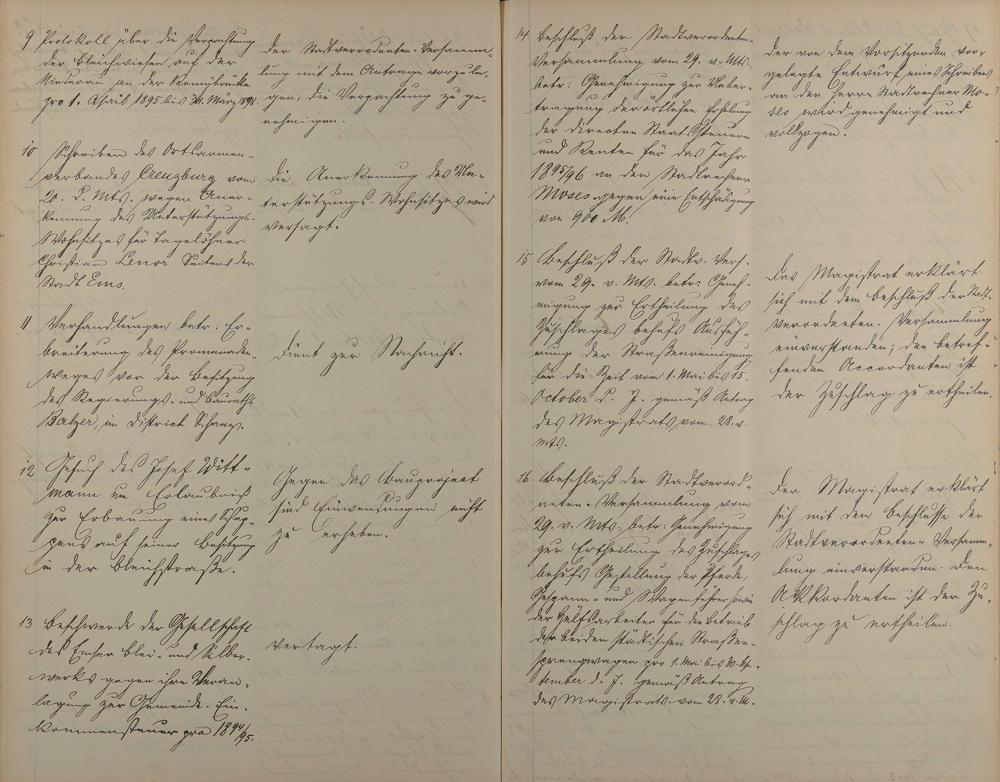 9 Protokoll über die Verpachtung
der Bleichwiesen auf der
Niederau an der Kemmbrücke
pro 1. April 1895 bis 31. März 1898.
Der Stadtverordneten-Versamm-
lung mit dem Antrage vorzule-
gen, die Verpachtung zu ge-
nehmigen.
10 Schreiben des Ortsarmen-
verbandes Creuzburg vom
20. d. Mts. wegen Aner-
kennung des Unterstützungs-
Wohnsitzes für Tagelöhner
Christian Lenor Seitens der
Stadt Ems.
Die Anerkennung des Un-
terstützungs-Wohnsitzes wird
versagt.
11 Verhandlungen betr: Er-
breiterung des Promenaden-
weges vor der Besitzung
des Regierungs- und Baurath
Balzer, in District Schanz.
Dient zur Nachricht.
12 Gesuch des Josef Witt-
mann um Erlaubniß
zur Erbauung eines Schup-
pens auf seiner Besitzung
in der Bleichstraße.
Gegen das Bauproject
sind Einwendungen nicht
zu erheben.
13 Beschwerde der Gesellschaft
des Emser Blei- und Silber-
werks gegen ihre Veran-
lagung zur Gemeinde-Ein-
kommensteuer pro 1894/95.
vertagt.
14 Beschluß der Stadtverordneten-
Versammlung vom 29. v. Mts.
betr: Genehmigung zur Ueber-
tragung der örtlichen Erhebung
der directen Staatssteuern
und Renten für das Jahr
1895/96 an den Stadtrechner
Moses gegen eine Entschädigung
von 900 M.
Der von dem Vorsitzenden vor-
gelegte Entwurf eines Schreibens
an den Herrn Stadtrechner Mo-
ses wird genehmigt und
vollzogen.
15 Beschluß der Stadtv. Vers.
vom 29. v. Mts. betr: Geneh-
migung zur Ertheilung des
Zuschlages behufs Ausfüh-
rung der Straßenreinigung
für die Zeit vom 1. Mai bis 15.
October d. J. gemäß Antrag
des Magistrats vom 28. v.
Mts.
Der Magistrat erklärt
sich mit dem Beschluß der Stadt-
verordneten-Versammlung
einverstanden; den betref-
fenden Accordanten ist
der Zuschlag zu ertheilen.
16 Beschluß der Stadtverord-
neten-Versammlung vom
29. v. Mts. betr: Genehmigung
zur Ertheilung des Zuschlags
behufs Gestellung der Pferde,
Gespann- und Wagenführer sowie
der Hülfsarbeiter für den Betrieb
der beiden städtischen Straßen-
sprengwagen pro 1. Mai bis 30. Sep-
tember d. J. gemäß Antrag
des Magistrats vom 28. v. M.
Der Magistrat erklärt
sich mit dem Beschlusse der
Stadtverordneten-Versamm-
lung einverstanden. Den
Akkordanten ist der Zu-
schlag zu ertheilen.